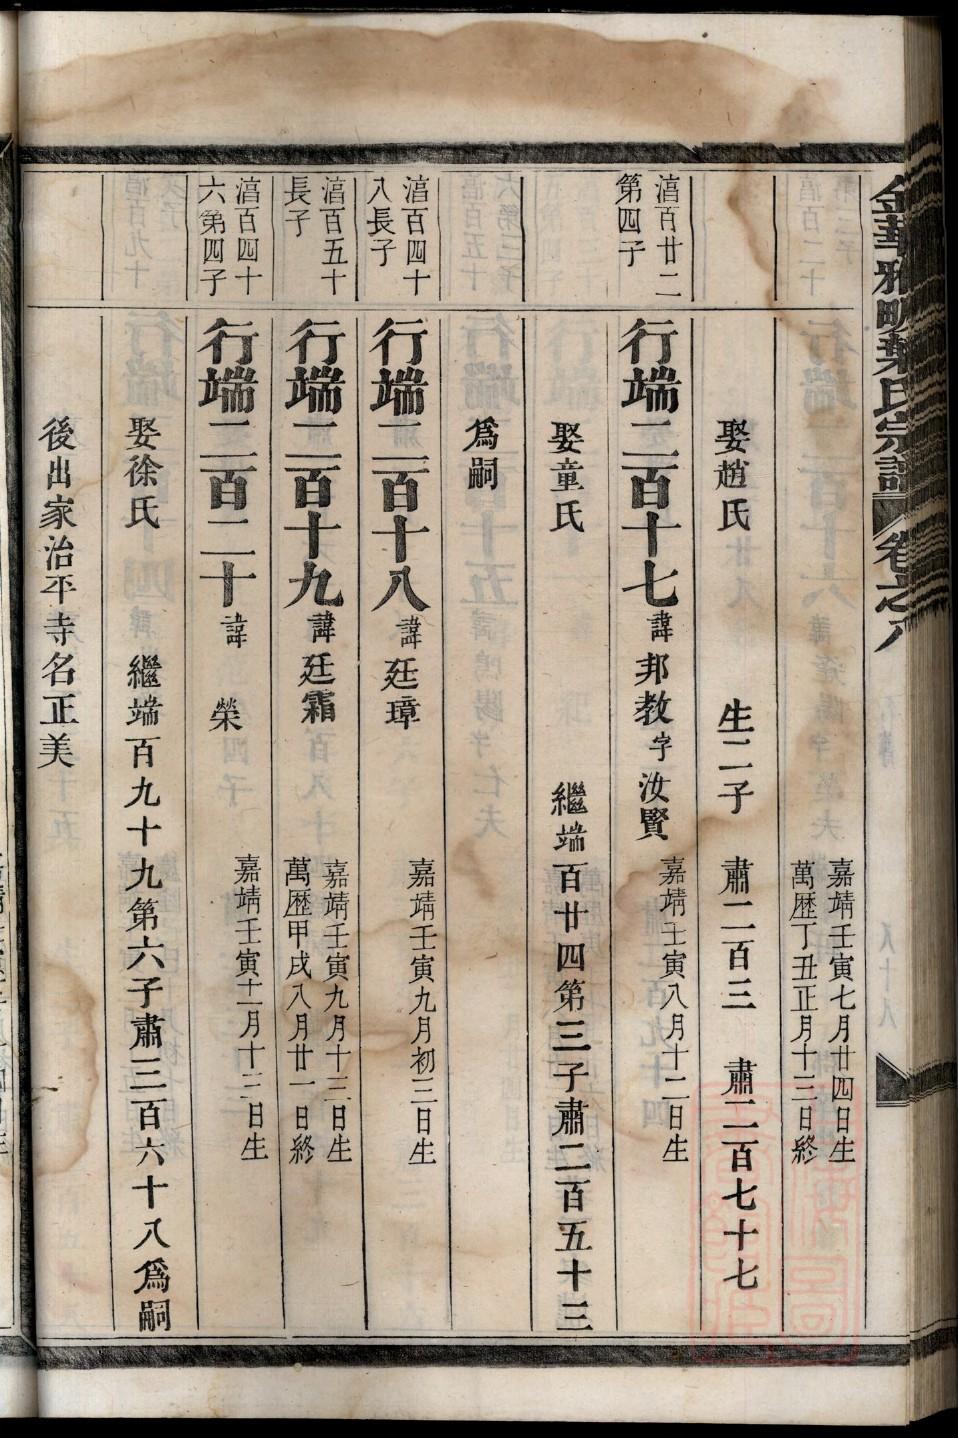 金華雅畈葉氏宗譜 卷之八
嘉靖壬寅七月廿四日生
萬歷丁丑正月十三日終
娶趙氏 生二子 肅二百三 肅二百七十七
湻百廿二
第四子
行端二百十七 諱邦教 字汝賢 嘉靖壬寅八月十二日生
娶童氏 繼端百廿四第三子肅二百五十三
爲嗣
湻百四十
八長子
行端二百十八 諱廷璋 嘉靖壬寅九月初三日生
湻百五十
長子
行端二百十九 諱廷霜 嘉靖壬寅九月十三日生
萬歷甲戌八月廿一日終
湻百四十
六第四子
行端二百二十 諱榮 嘉靖壬寅十一月十三日生
娶徐氏 繼端百九十九第六子肅三百六十八爲嗣
後出家治平寺名正美